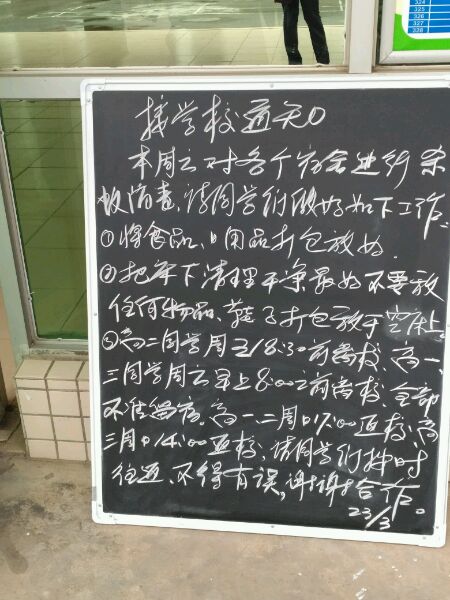 324
325
326
327
328
接学校通知
本周六对各个宿舍进行杀
蚊消毒,请同学们做好如下工作:
①将食品、日用品打包放好.
②把床下清理干净最好不要放
任何物品、鞋子打包放于空床上
③高二同学周五18:30前离校、高一、
三同学周六早上8:00之前离校、全部
不准留宿。高一、二周日17:00返校、高
三周日14:00返校、请同学们按时
往返、不得有误,谢谢合作。
23/3